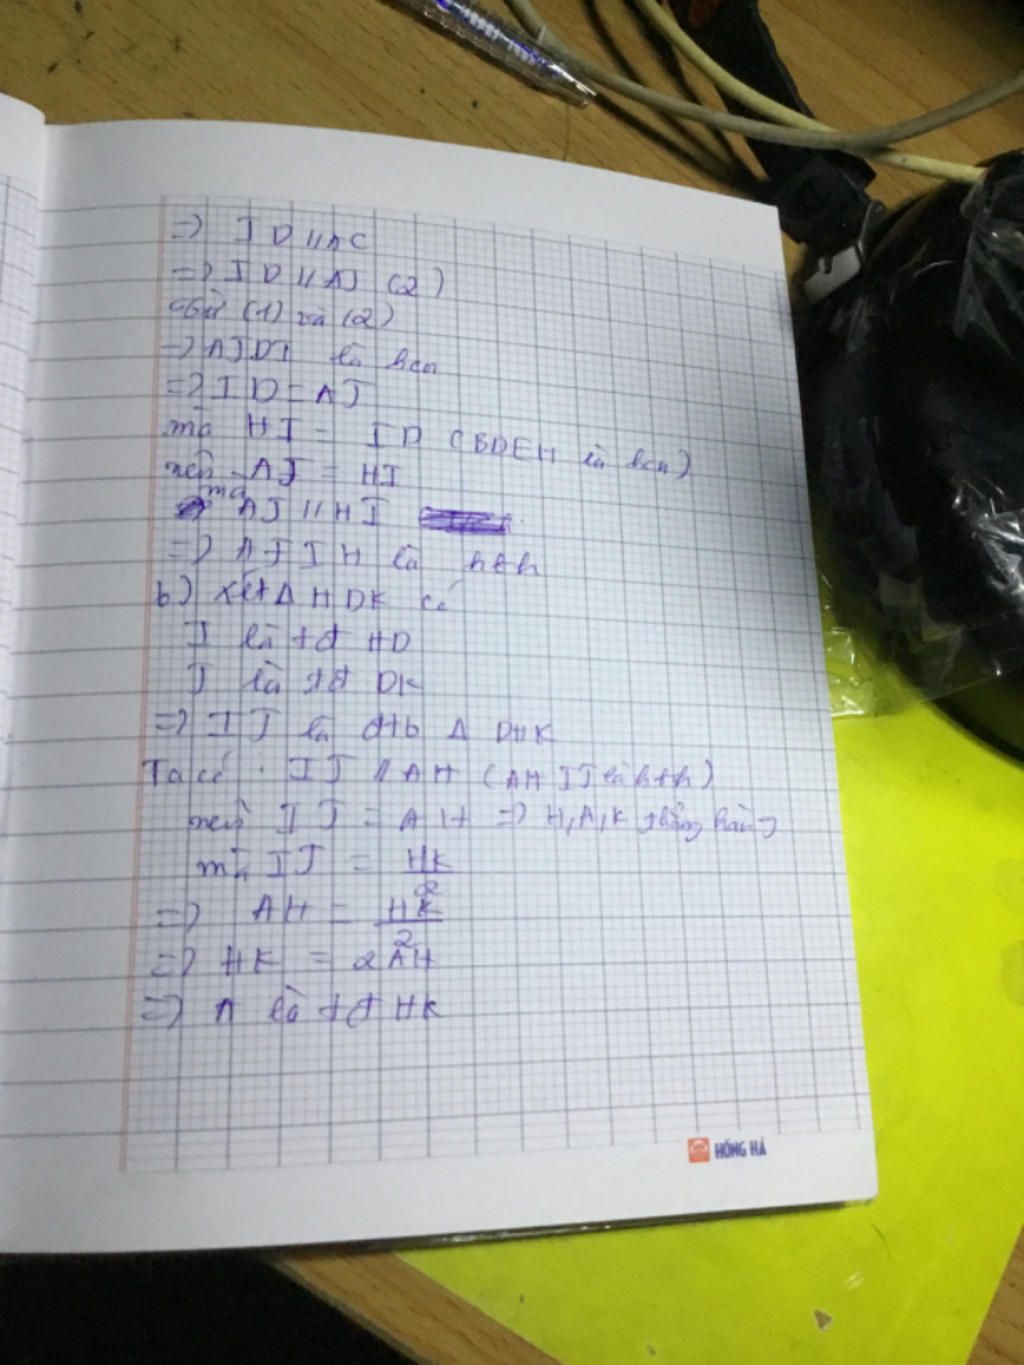 => ID // AC
=> ID // AJ (2)
Từ (1) và (2)
=> AJDI là hcn
=> ID = AJ
mà HI = ID (BDEH là hcn)
nên AJ = HI
mà AJ // HI
=> AJIH là hbh
b) Xét Δ HDK có
I là tđ HD
J là tđ DK
=> IJ là đtb Δ DHK
Ta có: IJ // AH (AHIJ là hbh)
nên IJ = AH => H, A, K thẳng hàng
mà IJ = HK/2
=> AH = HK/2
=> HK = 2AH
=> A là tđ HK
HỒNG HÀ